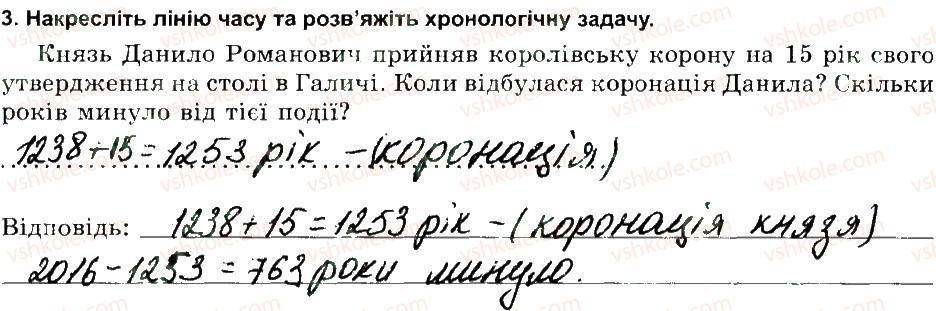 3. Накресліть лінію часу та розв’яжіть хронологічну задачу.
Князь Данило Романович прийняв королівську корону на 15 рік свого
утвердження на столі в Галичі. Коли відбулася коронація Данила? Скільки
років минуло від тієї події?
1238+15=1253 рік -(коронація)
Відповідь: 1238+15=1253 рік -(коронація князя)
2016-1253=763 роки минуло.